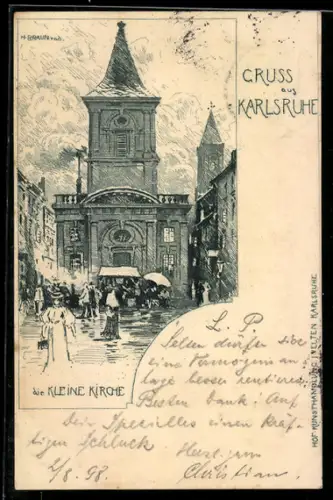 GRUSS
aus
KARLSRUHE
die KLEINE KIRCHE
HOF-KUNSTHANDLUNG VELTEN KARLSRUHE
L. P.
Selten dürfte sich
eine Vermögens an
lage besser rentieren.
Besten Dank! Auf
Dein Spezielles einen kräf-
tigen Schluck
Christian.
2/8. 98.